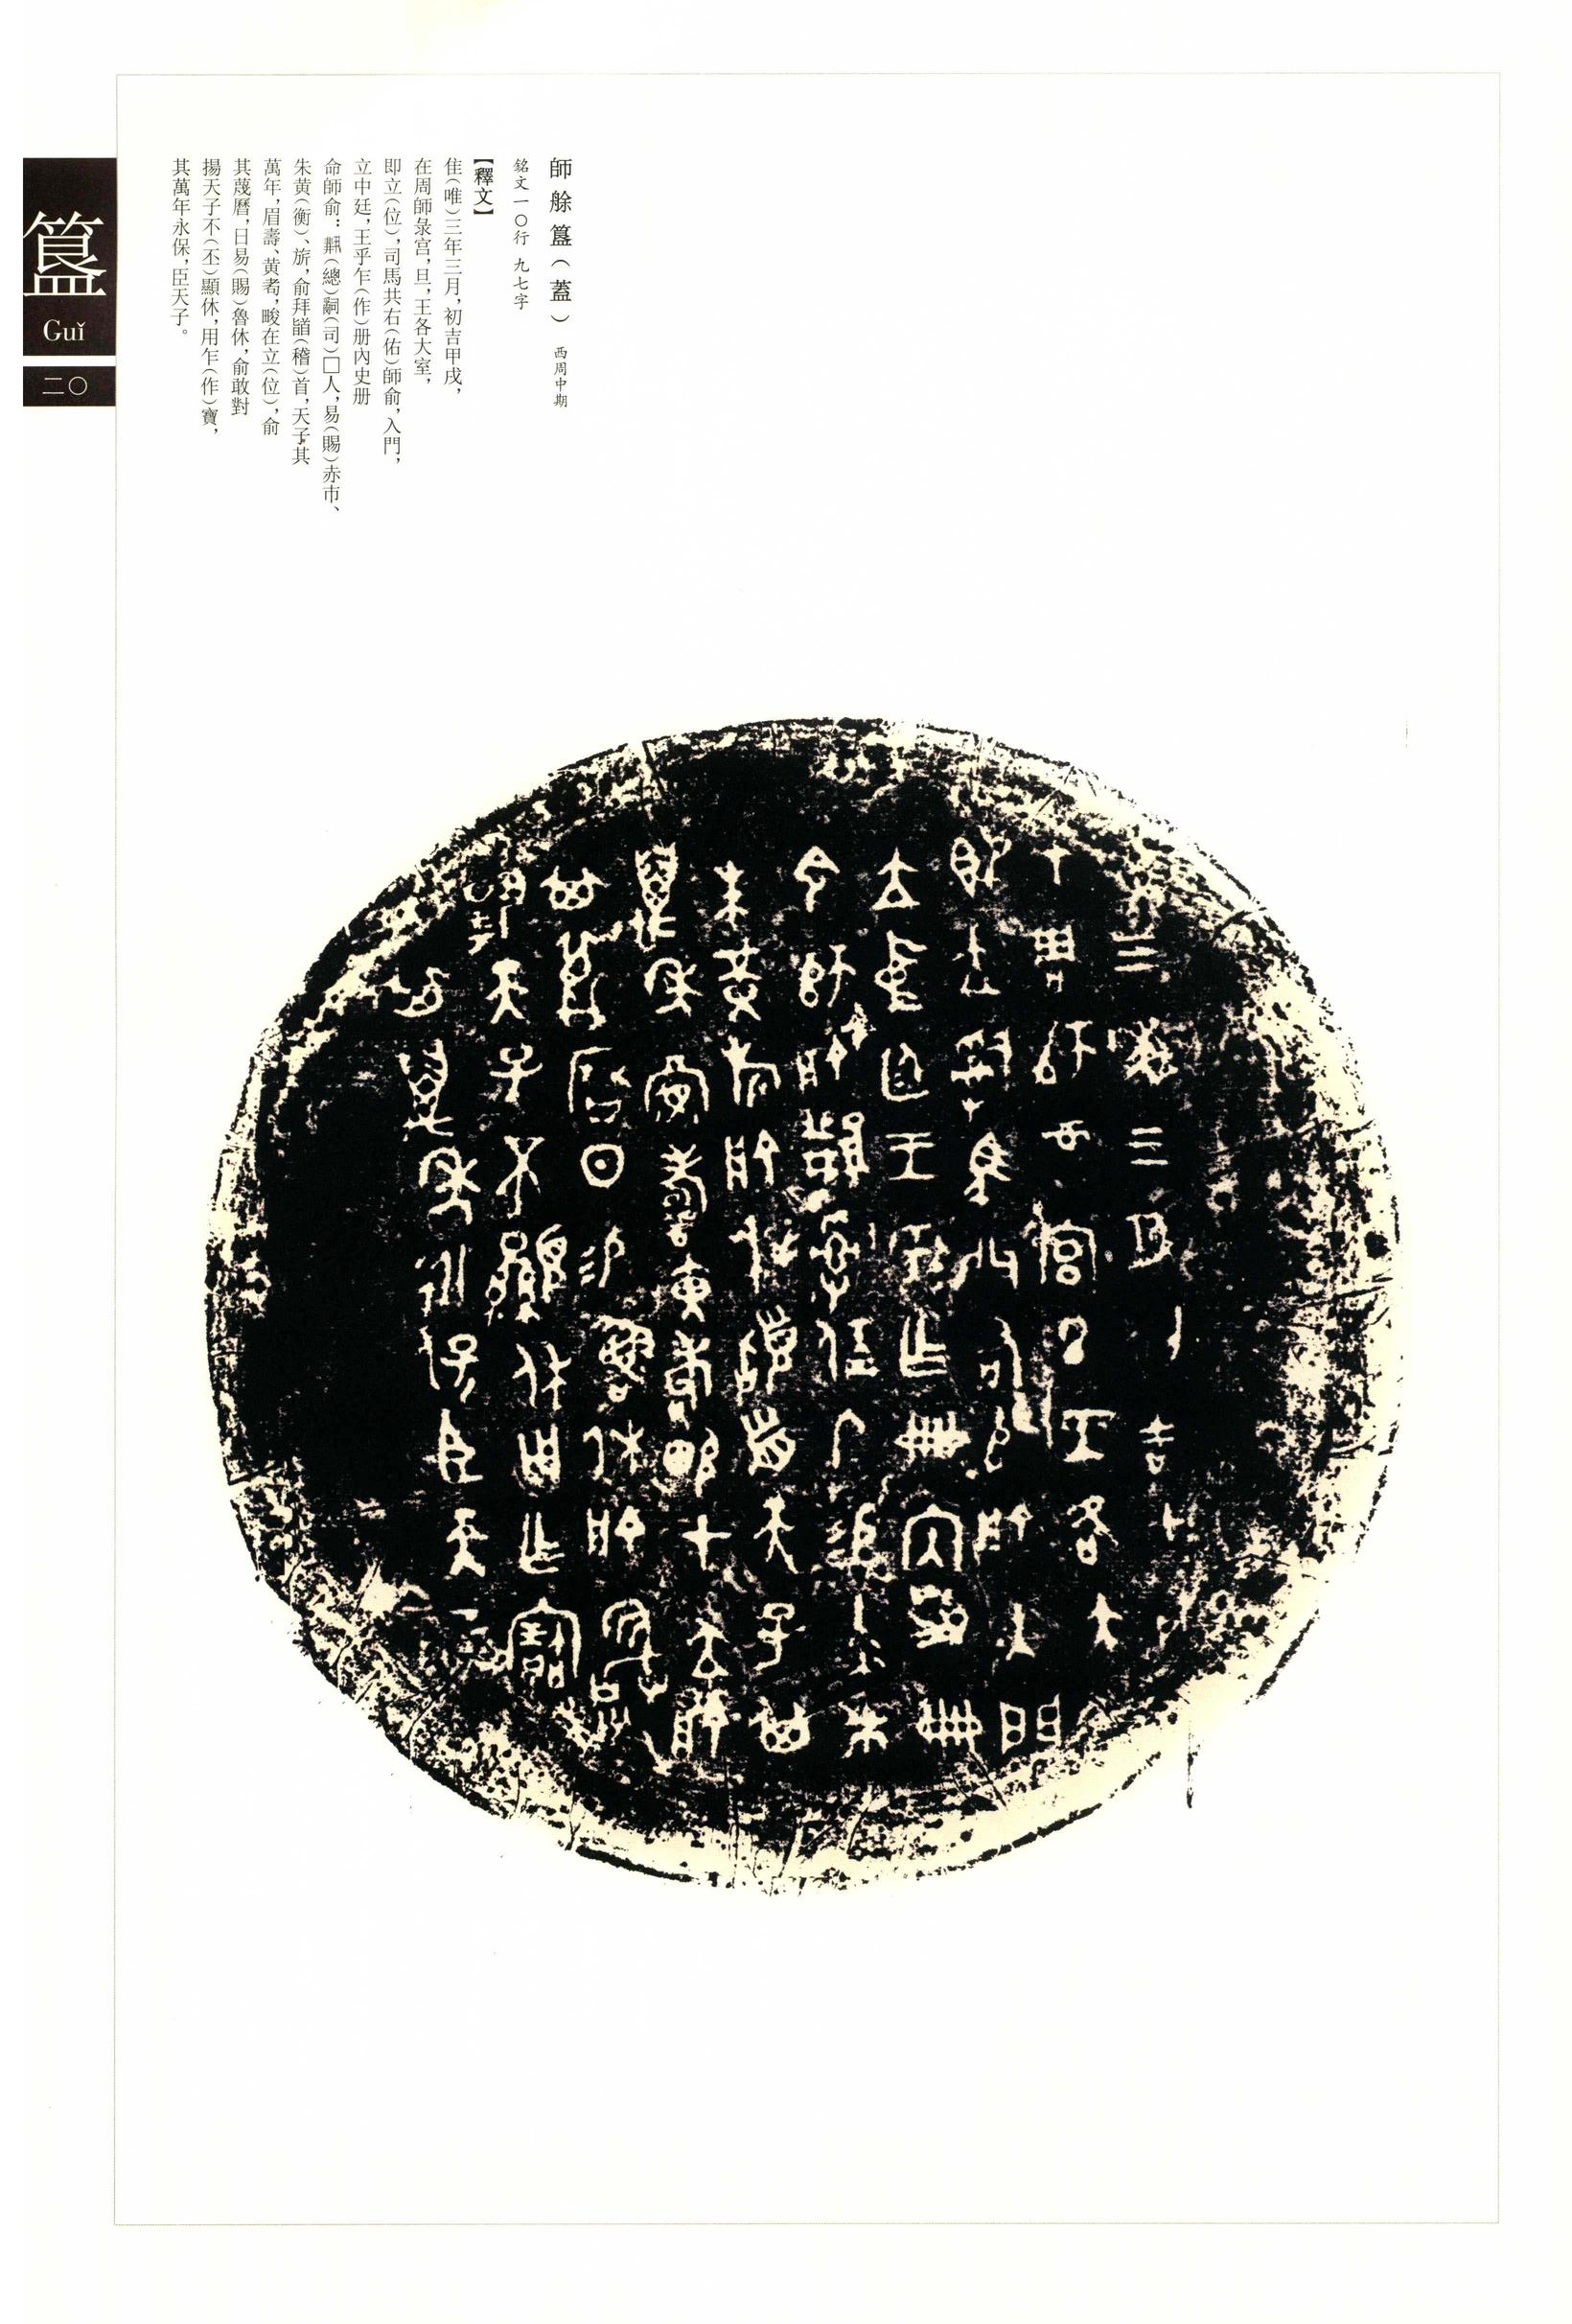 師艅簋（蓋） 西周中期
銘文一〇行 九七字
【釋文】
隹（唯）三年三月，初吉甲戌，
在周師彔宫，旦，王各大室，
即立（位），司馬共右（佑）師俞，入門，
立中廷，王乎乍（作）册內史册
命師俞：𤔲（總）嗣（司）□人，易（賜）赤巿、
朱黄（衡）、旂，俞拜䭫（稽）首，天子其
萬年，眉壽、黄耇，畯在立（位），俞
其蔑曆，日易（賜）魯休，俞敢對
揚天子不（丕）顯休，用乍（作）寶，
其萬年永保，臣天子。
簋
Guǐ
二〇